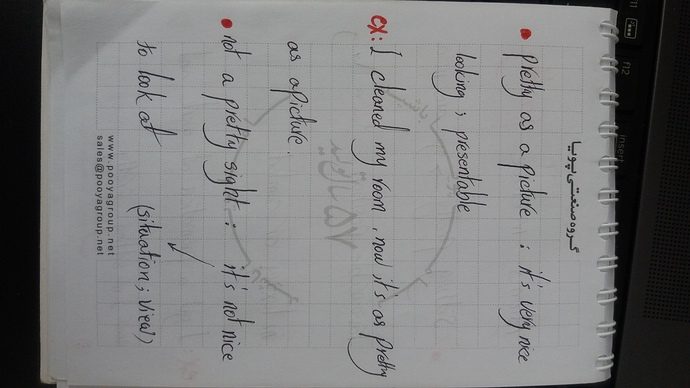 گروه صنعتی پویا
• pretty as a picture : it's very nice
looking ; presentable
ex: I cleaned my room, now it's as pretty
as a picture.
• not a pretty sight : it's not nice
to look at (situation ; view)
www.pooyagroup.net
sales@pooyagroup.net
f12
insert